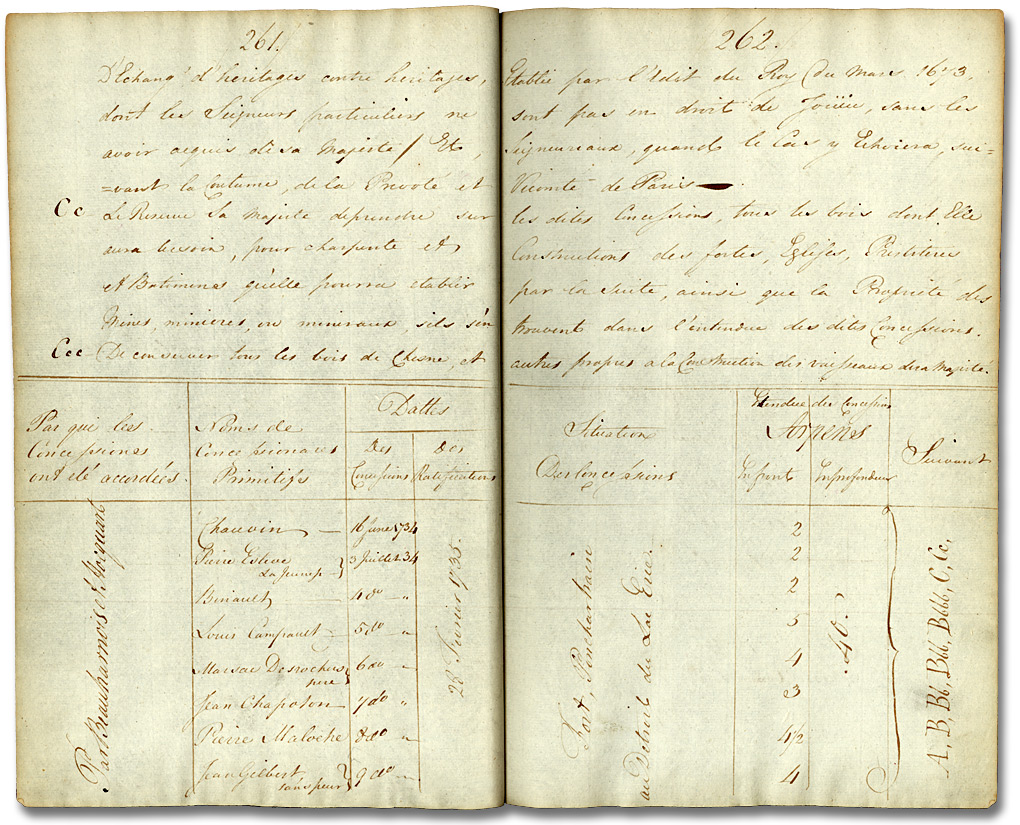 261.
D'Echang.e d'heritages contre heritages,
dont les Seigneurs particuliers ne
avoir acquis de sa Majesté / Et,
=vant la Coutume, de la Prevoté et
Cc Se Reserve Sa Majesté de prendre sur
aura besoin, pour charpente et
et Batimens qu'elle pourra etablir
Mines, minieres, ou mineraux, s'ils s'en
Ccc De conserver tous les bois de Chesne, et
Par qui les
Concessions
ont été accordées.
Noms de
Concessionaires
Primitifs
Dattes
Des
Concessions
Des
Ratifications
Par Beauharnois et Hocquart
Chauvin — 16 June 1734
Pierre Esteve 3 Juillet 34
La Jeunesse
Binault 4 do "
Louis Campault 5 do "
Marsac Desrochers 6 do "
pere
Jean Chapoton 7 do "
Pierre Maloche 8 do "
Jean Gilbert 9 do "
sanspeur
28 Fevrier 1735.
262.
Etablie par l'Edit du Roy du Mars 1673,
sont pas en droit de Joüir, sans les
Seigneuriaux, quand le Cas y Echoiera, sui=
Vicomté de Paris
les dites Concessions, tous les bois dont Elle
Constructions des fortes, Eglises, Presbiteres
par la Suite, ainsi que la Propriété des
trouvent dans l'entendue des dites Concessions.
autres propres a la Construction des vaisseaux de sa Majesté.
Situation
Des Concessions
Etendue des Concessions
Arpens
En front
En profondeur
Suivant
Fort, Ponchartrain
au Detroit du Lac Erié.
2
2
2
5
4
3
4½
4
40.
A, B, Bb, Bbb, Bbbb, C, Cc,